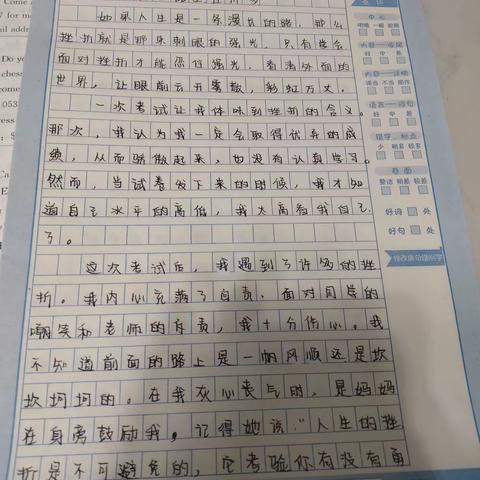 如果人生是一条漫长的路，那么
挫折就是那束刺眼的强光，只有学会
面对挫折才能 强光，看清外面的
世界，让眼前云开雾散，彩虹万丈。
一次考试让我体味到挫折的含义。
那次，我认为我一定会取得优异的成
绩，从而骄傲起来，也没有认真学习。
然而，当试卷发下来的时候，我才知
道自己水平的高低，我太高看我自己
了。
这次考试后，我遇到了许多的挫
折。我内心充满了自责，面对同学的
嘲笑和老师的斥责，我十分伤心。我
不知道前面的路上是一帆风顺还是坎
坎坷坷的。在我灰心丧气时，是妈妈
在身离鼓励我。记得她说："人生的挫
折是不可避免的，它考验你有没有勇
点评
中心
明确 一般
内容——选材
好 中 差
内容——详略
得当 不当 颠倒
语言——语句
好 中 差
错字、标点
少 稍多 较多
卷面
整洁 稍差 较差
好词 处
好句 处
修改病句错别字
Come
7 for m
ail addre
Do yo
chess
053
ress
: S
Ca
E